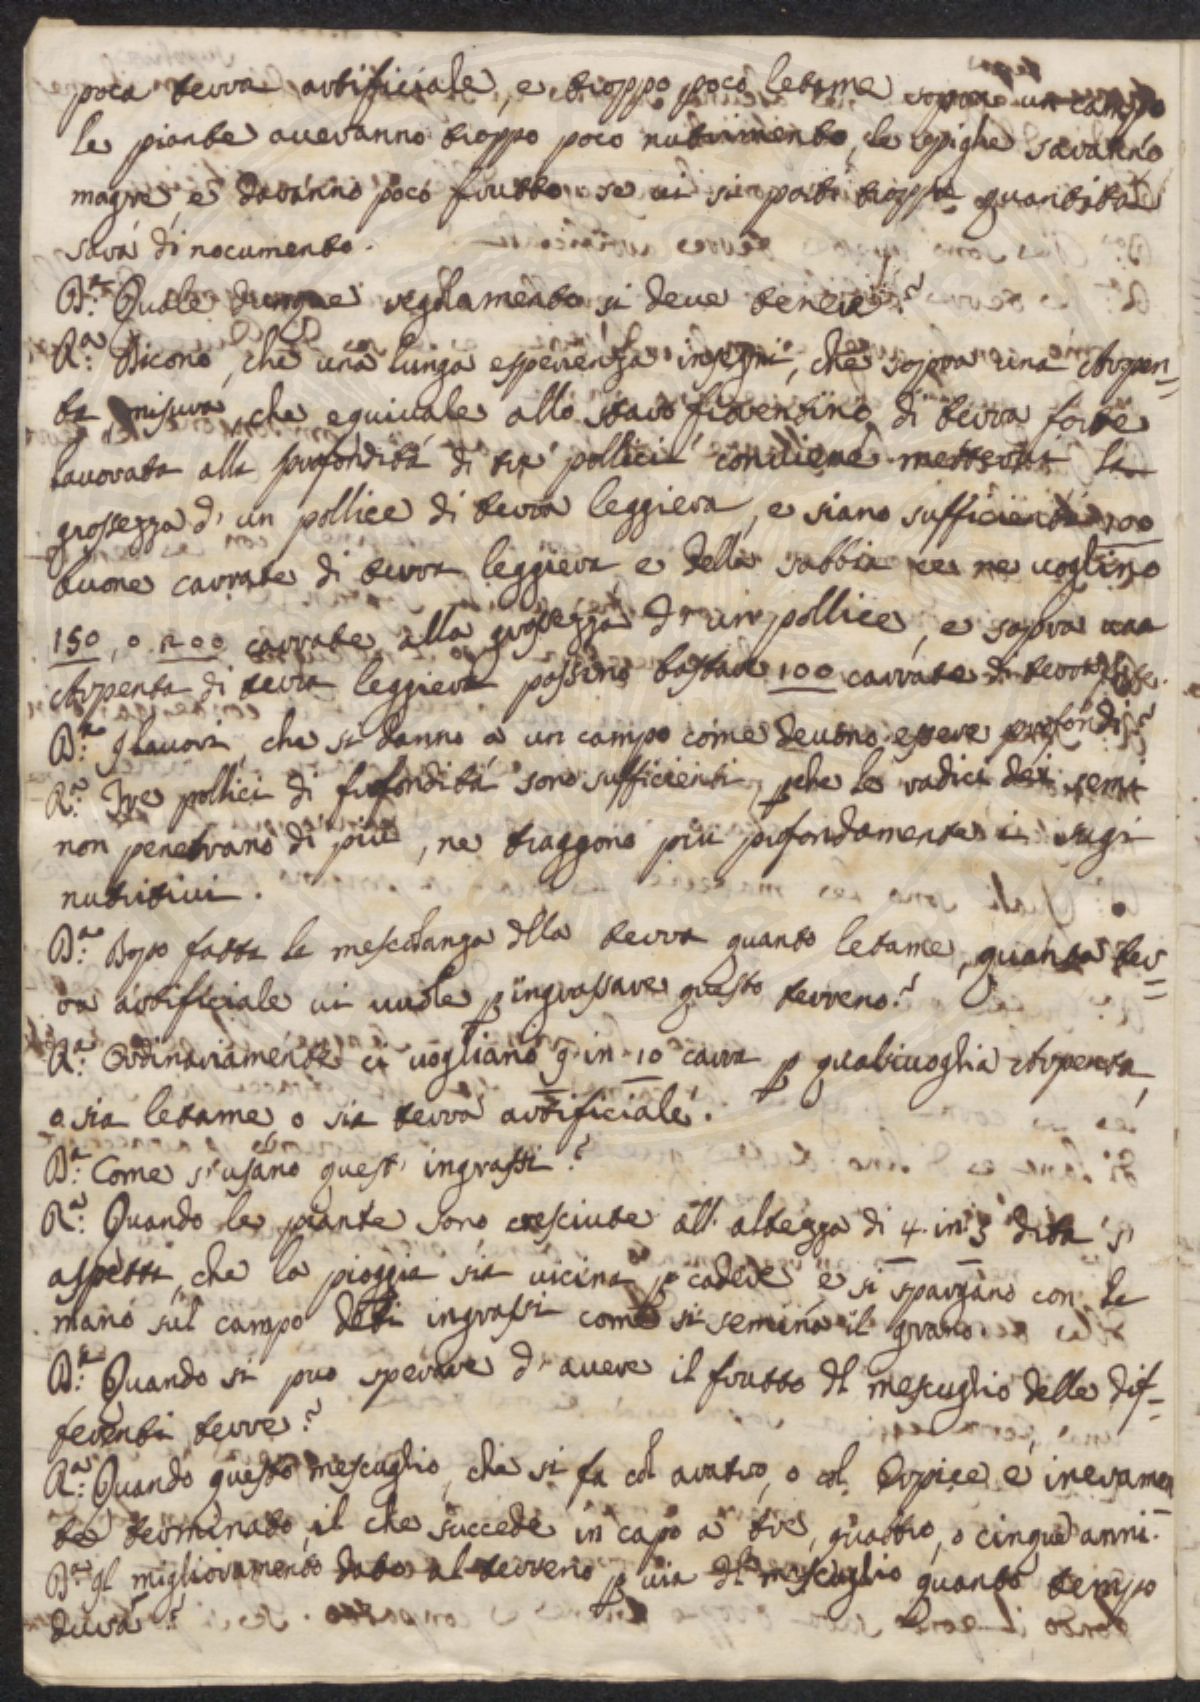 poca terra artificiale, e troppo poco letame sopra un campo
le piante averanno troppo poco nutrimento, le spighe saranno
magre, e daranno poco frutto se vi si porti troppa quantita
sarà di nocumento.
D.ª Quale dunque regolamento si deve tenere?
R.ª Dicono, che una lunga esperienza insegni, che sopra una Arpen=
ta misura che equivale allo staro fiorentino di terra forte
lavorata alla profondità di tre pollici conviene mettervi la
grossezza d' un pollice di terra leggiera, e siano sufficienti 100
buone carrate di terra leggiera e della sabbia ce ne voglino
150, o 200 carrate alla grossezza d' un pollice, e sopra una
Arpenta di terra leggiera possino bastare 100 carrate di terra forte.
D.ª Il lavori, che si danno a un campo come devono essere profondi?
R.ª Tre pollici di profondità sono sufficienti, pche le radici dei semi
non penetrano di più, ne traggono più profondamente i sugi
nutritivi.
D.ª Dopo fatta la mescolanza dlla terra quanto letame, quanta ter=
ra artificiale vi vuole p ingrassare questo terreno?
R.ª Ordinariamente ci vogliano 9 in 10 carra p qualsivoglia Arpenta,
o sia letame o sia terra artificiale.
D.ª Come s' usano quest' ingrassi?
R.ª Quando le piante sono cresciute all' altezza di 4. in 5 dita si
aspetta, che la pioggia sia vicina p cadere e si spargano con la
mano sul campo detti ingrassi come si semina il grano.
D.ª Quando si puo sperare d' avere il frutto dl mescuglio delle dif=
ferenti terre?
R.ª Quando questo mescuglio, che si fa col aratro, o col Erpice è interamen
te terminato, il che succede in capo a tre, quattro, o cinque anni.
D.ª Il miglioramento dato al terreno p via dl mescuglio quanto tempo
dura?